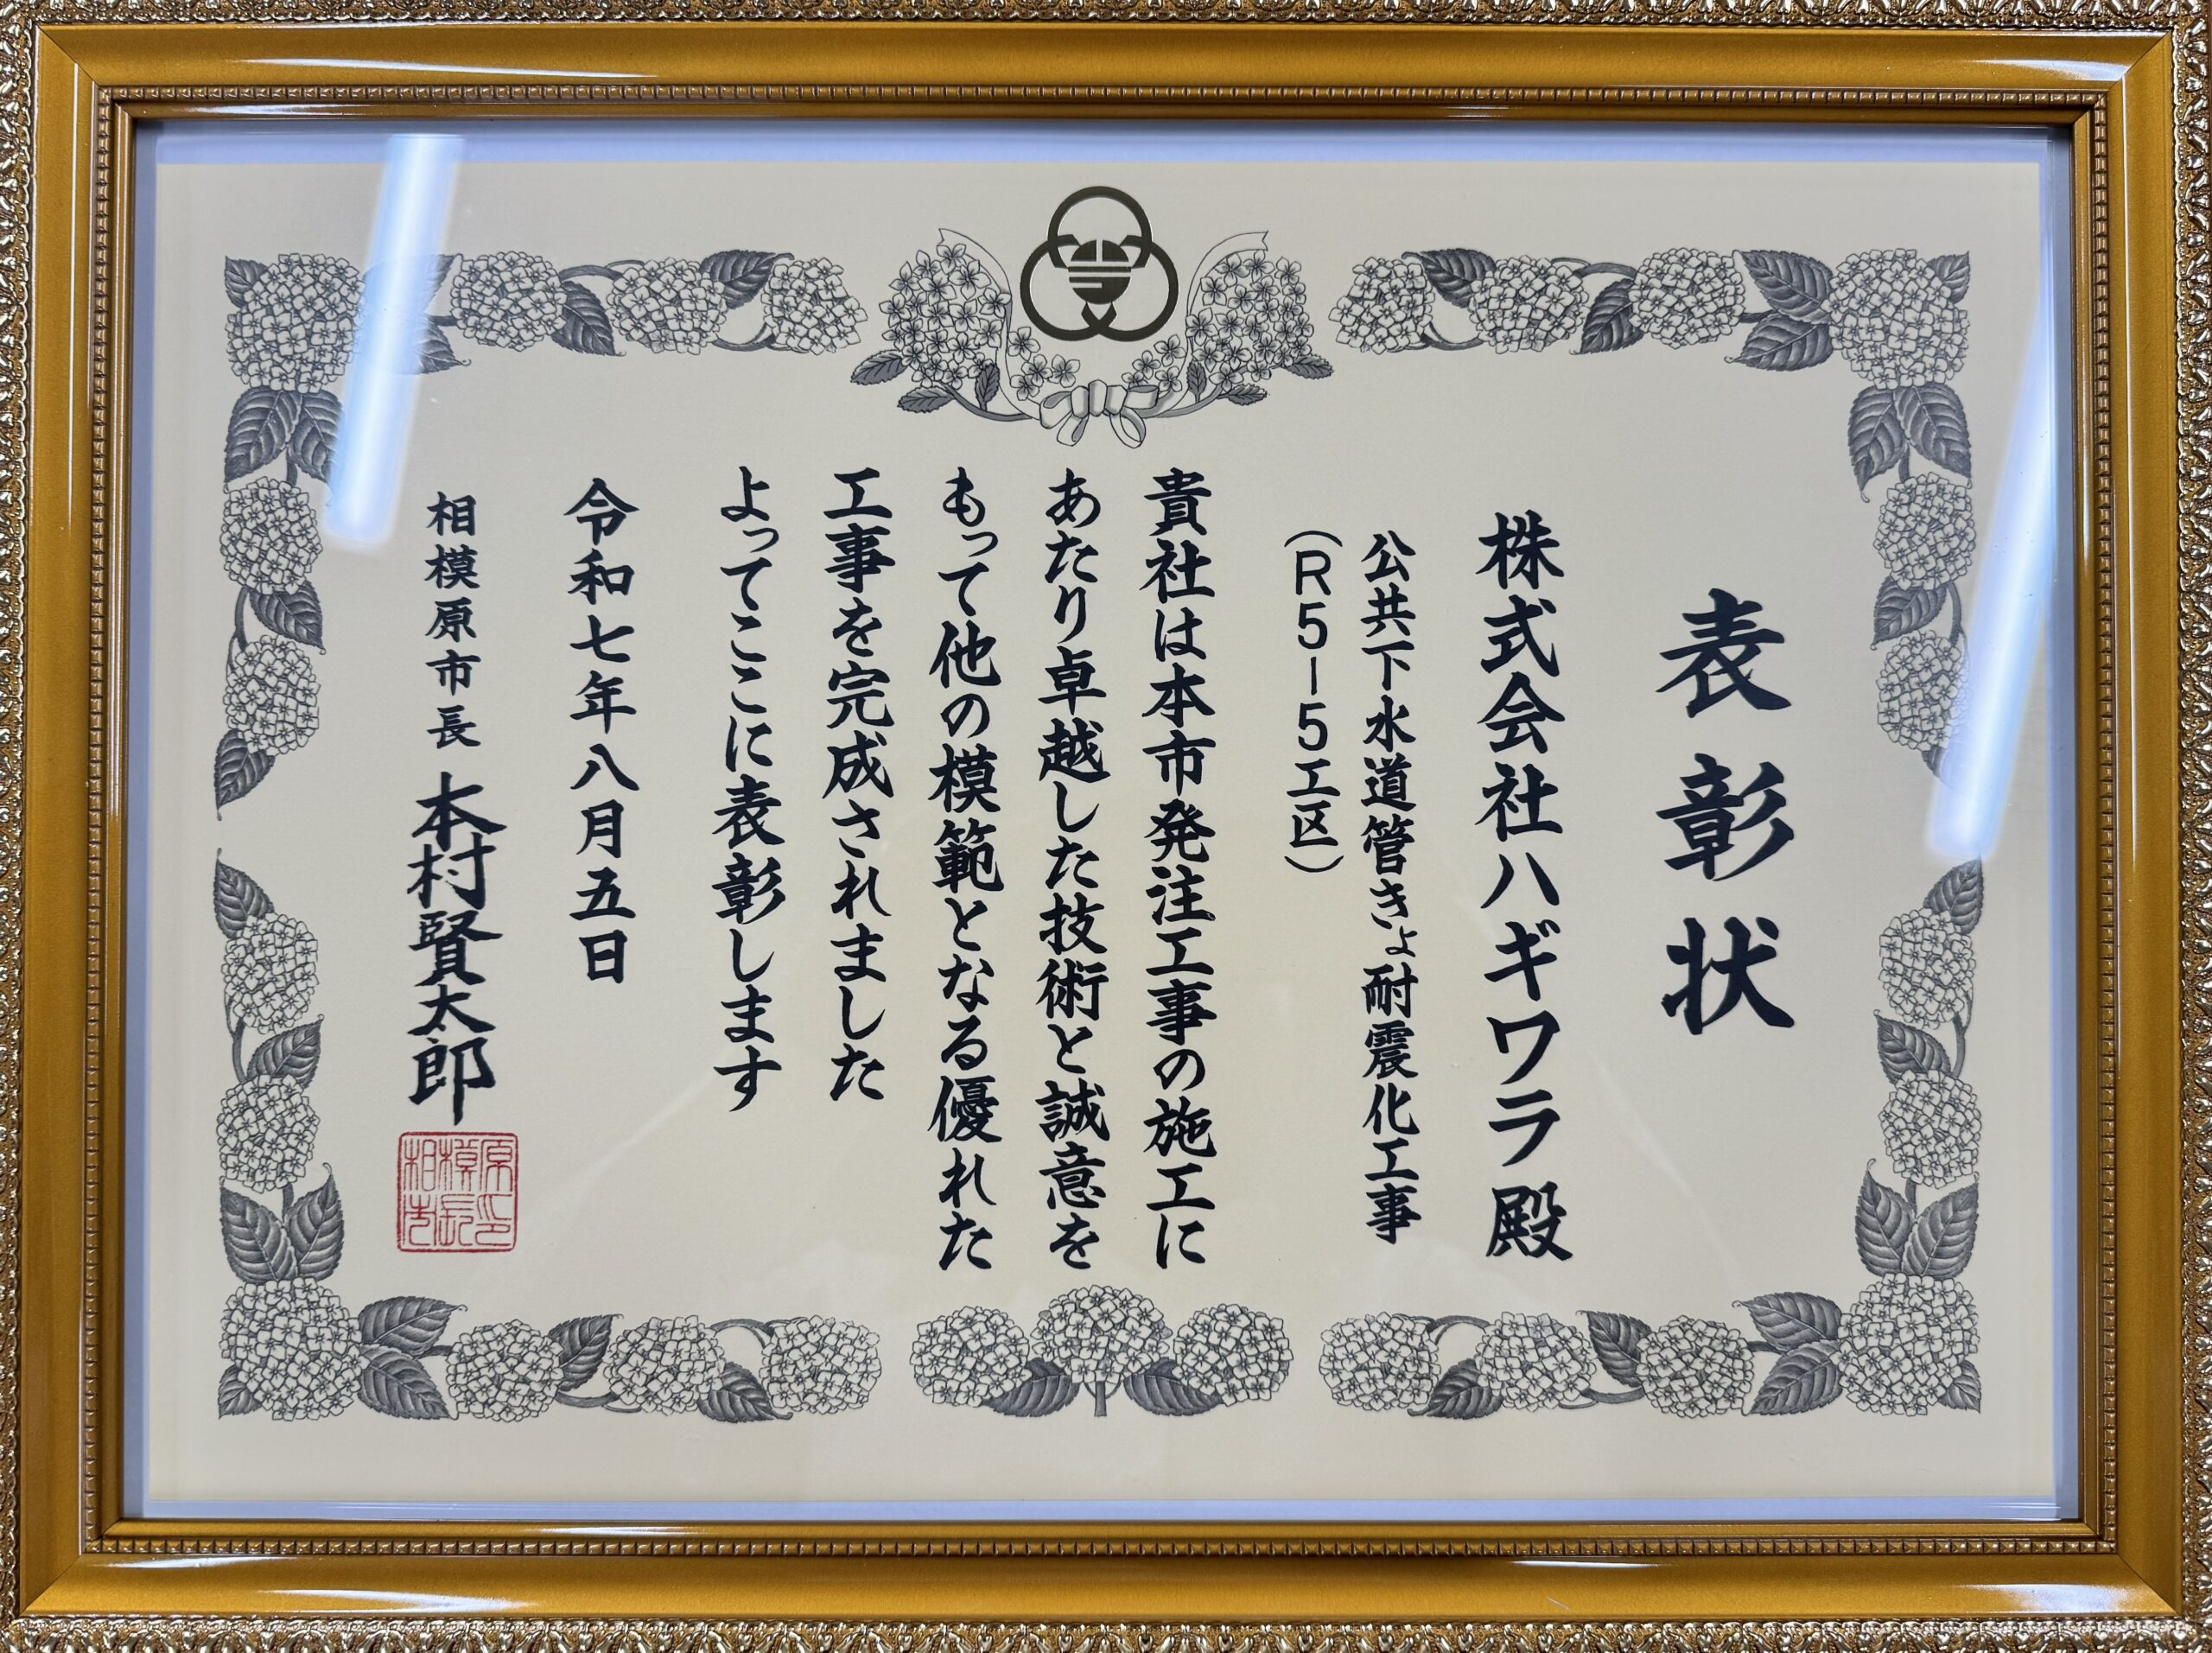 表彰状
株式会社ハギワラ殿
公共下水道管きょ耐震化工事
（R5－5工区）
貴社は本市発注工事の施工に
あたり卓越した技術と誠意を
もって他の模範となる優れた
工事を完成されました
よってここに表彰します
令和七年八月五日
相模原市長 本村賢太郎
相模原市長印